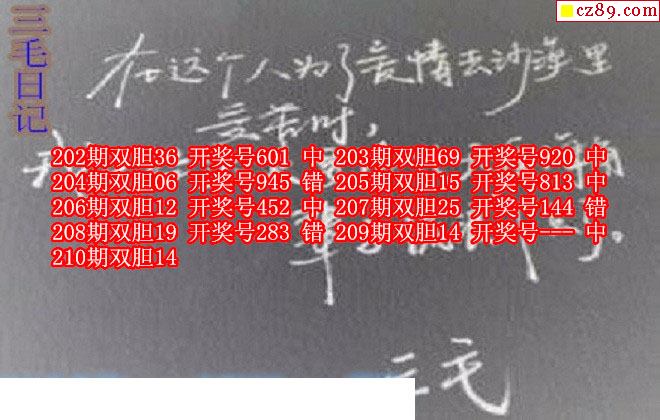 cz89.com
三毛日记
在这个人为了爱情去沙漠里
受苦时，
202期双胆36 开奖号601 中 203期双胆69 开奖号920 中
204期双胆06 开奖号945 错 205期双胆15 开奖号813 中
206期双胆12 开奖号452 中 207期双胆25 开奖号144 错
208期双胆19 开奖号283 错 209期双胆14 开奖号--- 中
210期双胆14
三毛